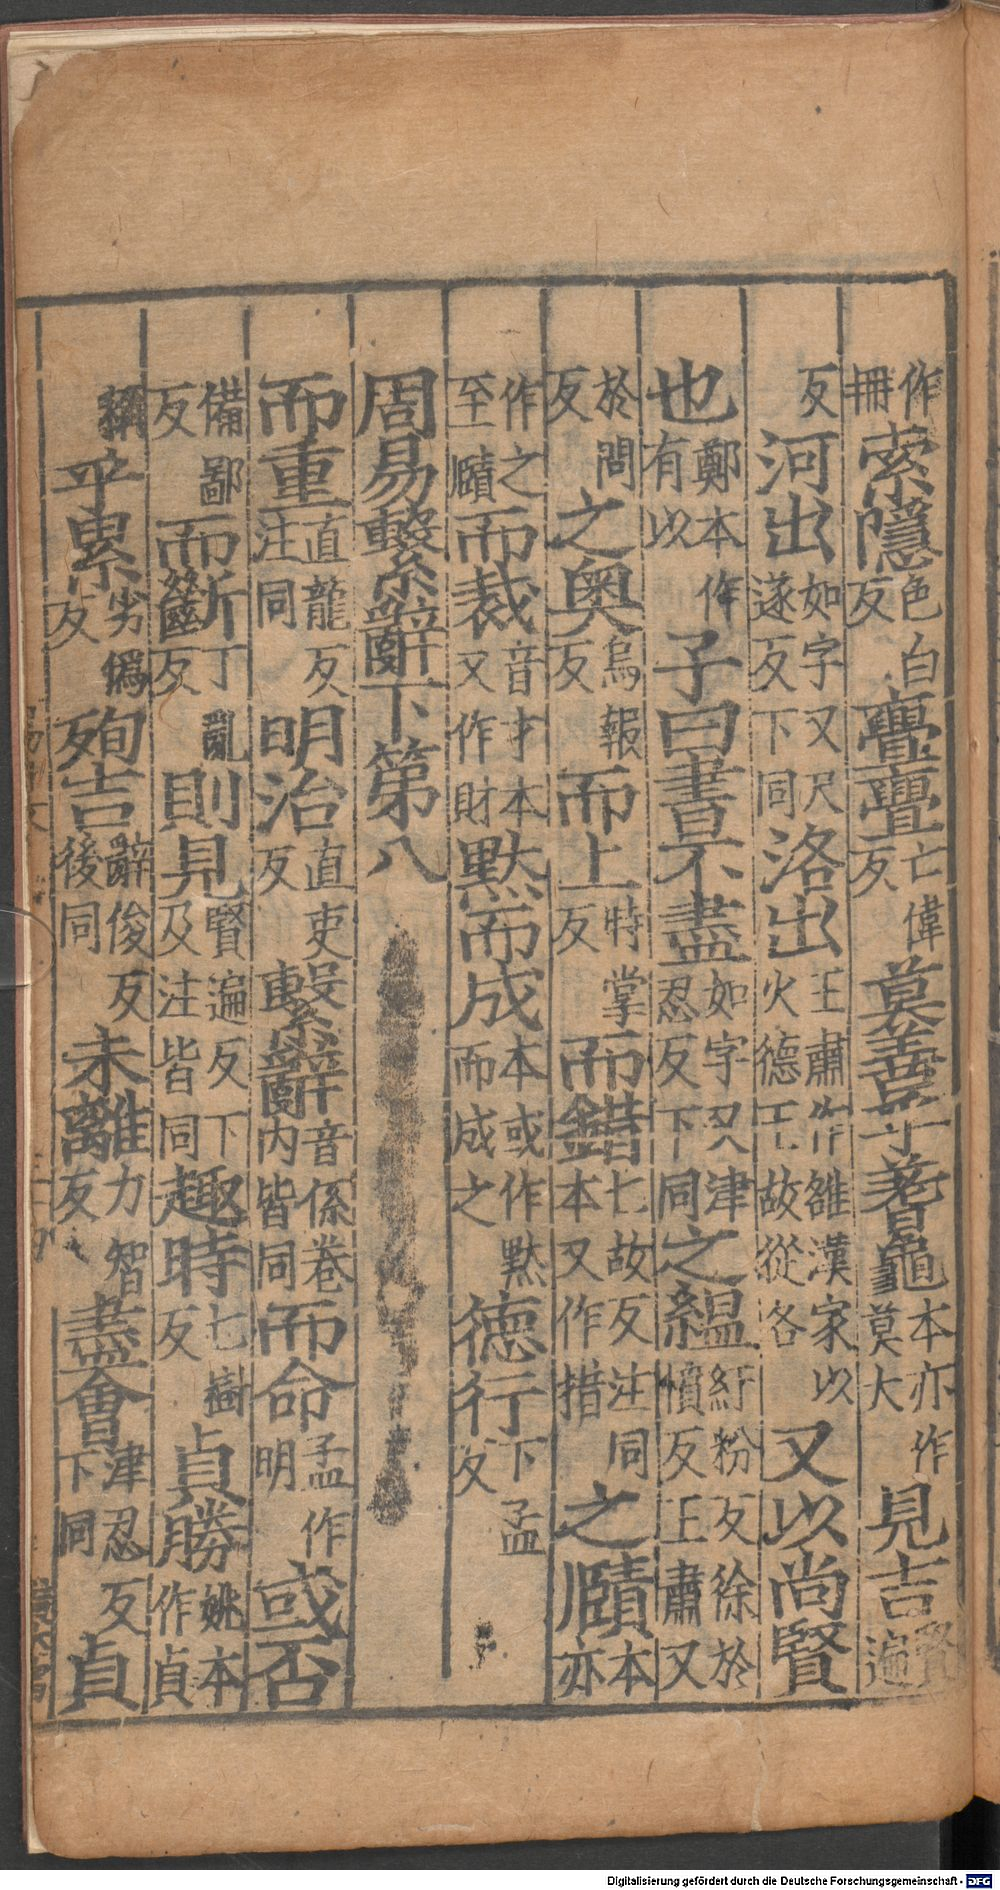 作冊索隱色白反亹亹亡偉反莫善乎蓍龜本亦作莫大見吉賢遍
反河出如字又尺遂反下同洛出王肅作雒漢家以火德王故從各又以尚賢
也鄭本作有以子曰書不盡如字又津忍反下同之緼紆粉反徐於憤反王肅又
於問反之奧烏報反而上特掌反而錯七故反注同本又作措之賾本亦
作之至賾而裁音才本又作財默而成本或作默而成之德行下孟反
周易繫辭下第八
而重直龍反注同明治直吏反繫辭音係卷內皆同而命孟作明或否
備鄙反而斷丁亂反則見賢遍反下及注皆同趣時七樹反貞勝姚本作貞
稱平累劣僞反殉吉辭俊反後同未離力智反盡會津忍反下同貞
Digitalisierung gefördert durch die Deutsche Forschungsgemeinschaft - DFG